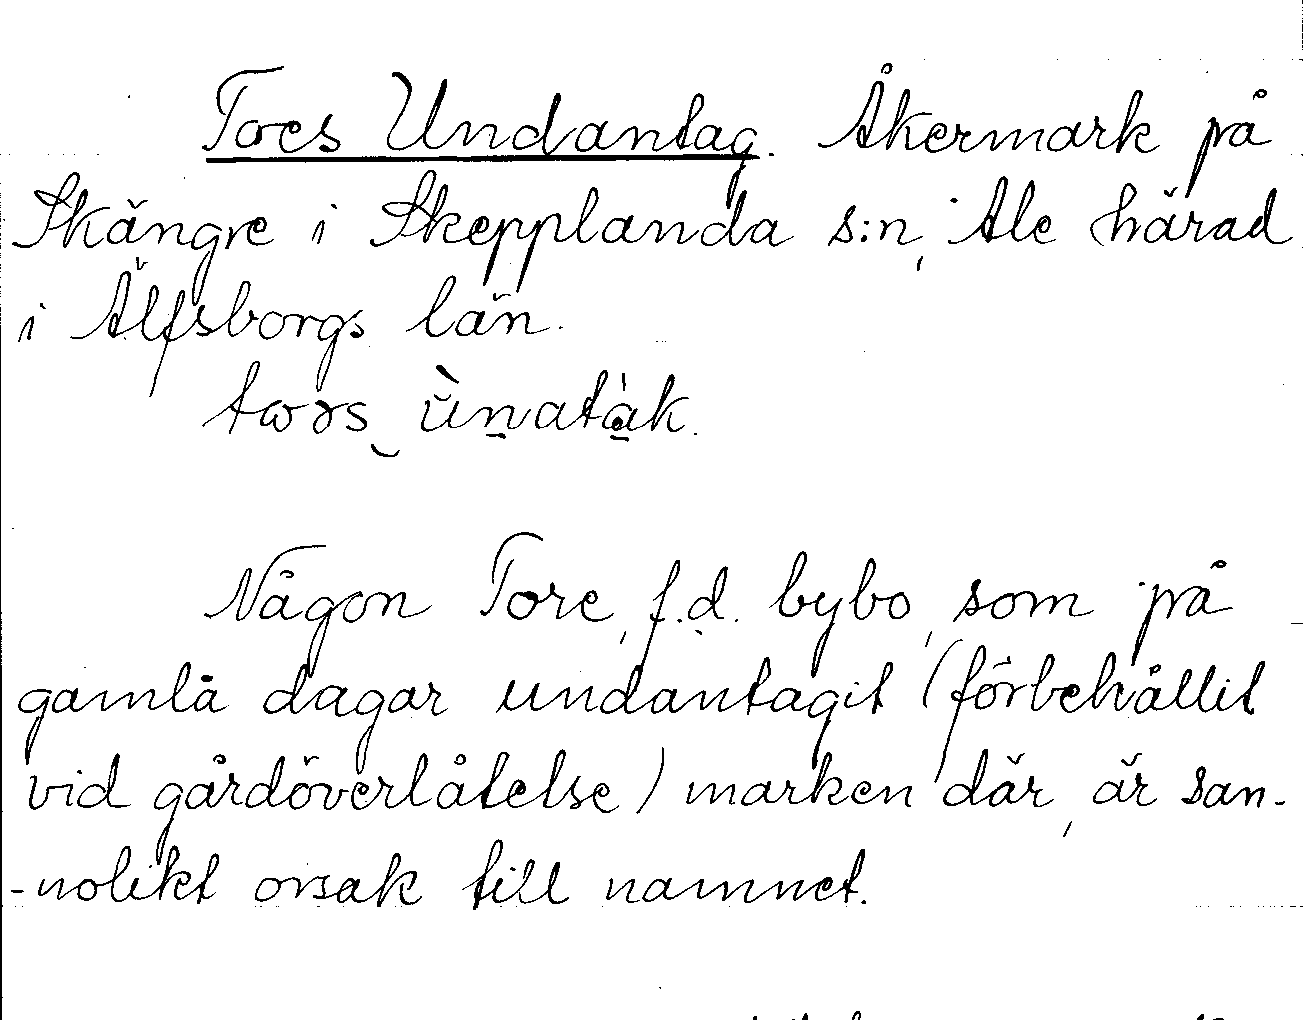 Tores Undantag. Åkermark på
Skängre i Skepplanda s:n, Ale härad
i Älfsborgs län.
Någon Tore, f.d. bybo, som på
gamla dagar undantagit (förbehållit
vid gårdöverlåtelse) marken där, är san-
-nolikt orsak till namnet.